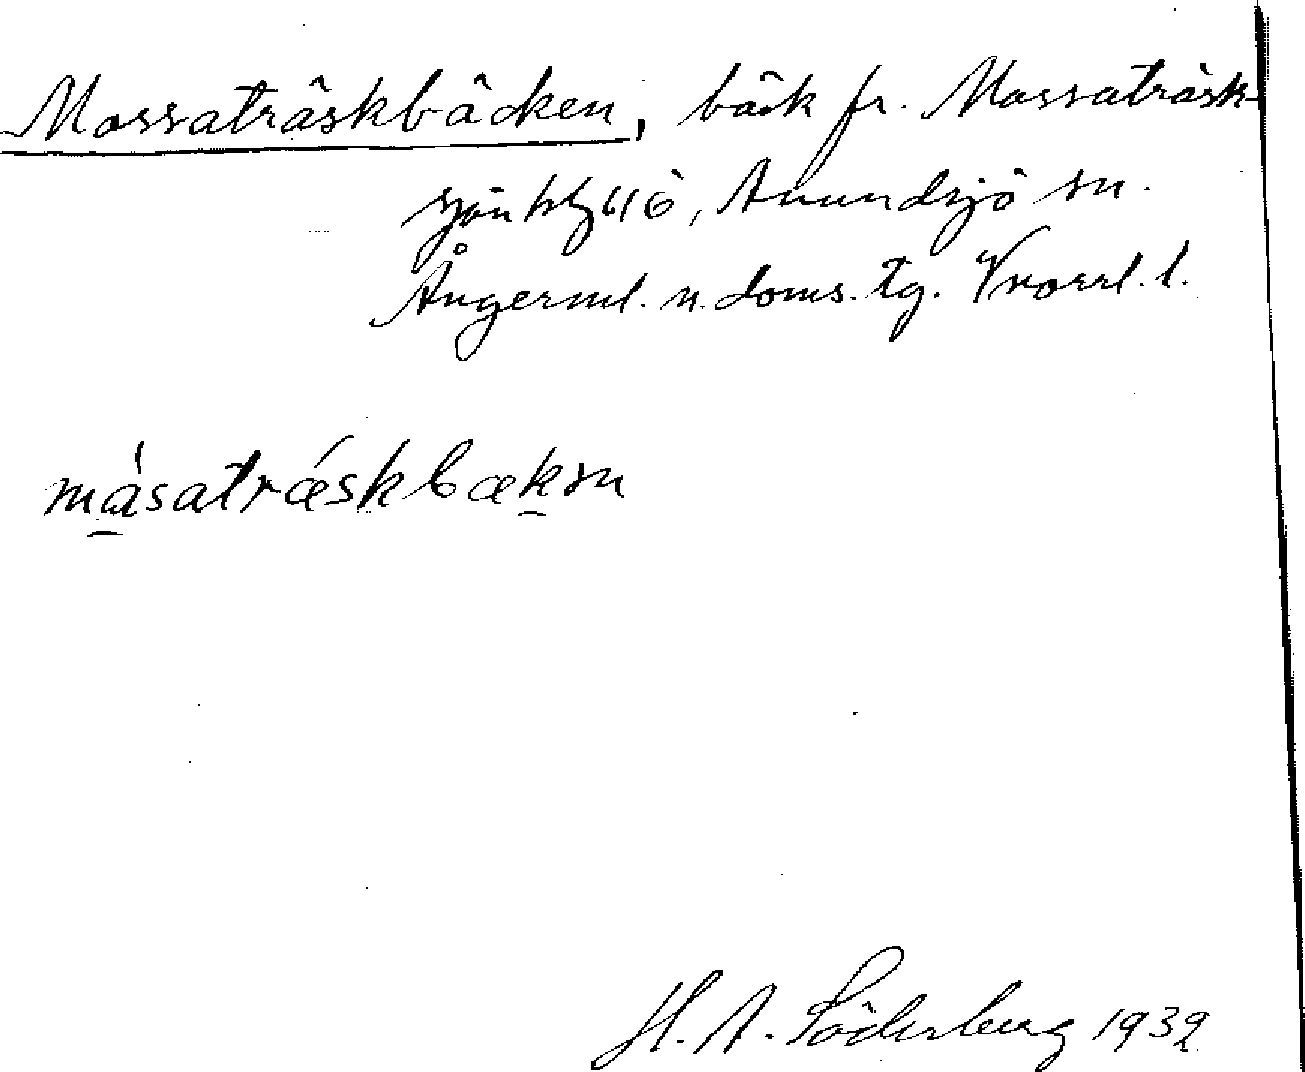 Mossaträskbäcken, bäck fr. Mossaträsk-
sjön, Anundsjö sn.
Ångerml. n. doms. tg. Vnorrl. l.
måsatræskbæksn
H. A. Söderberg 1932